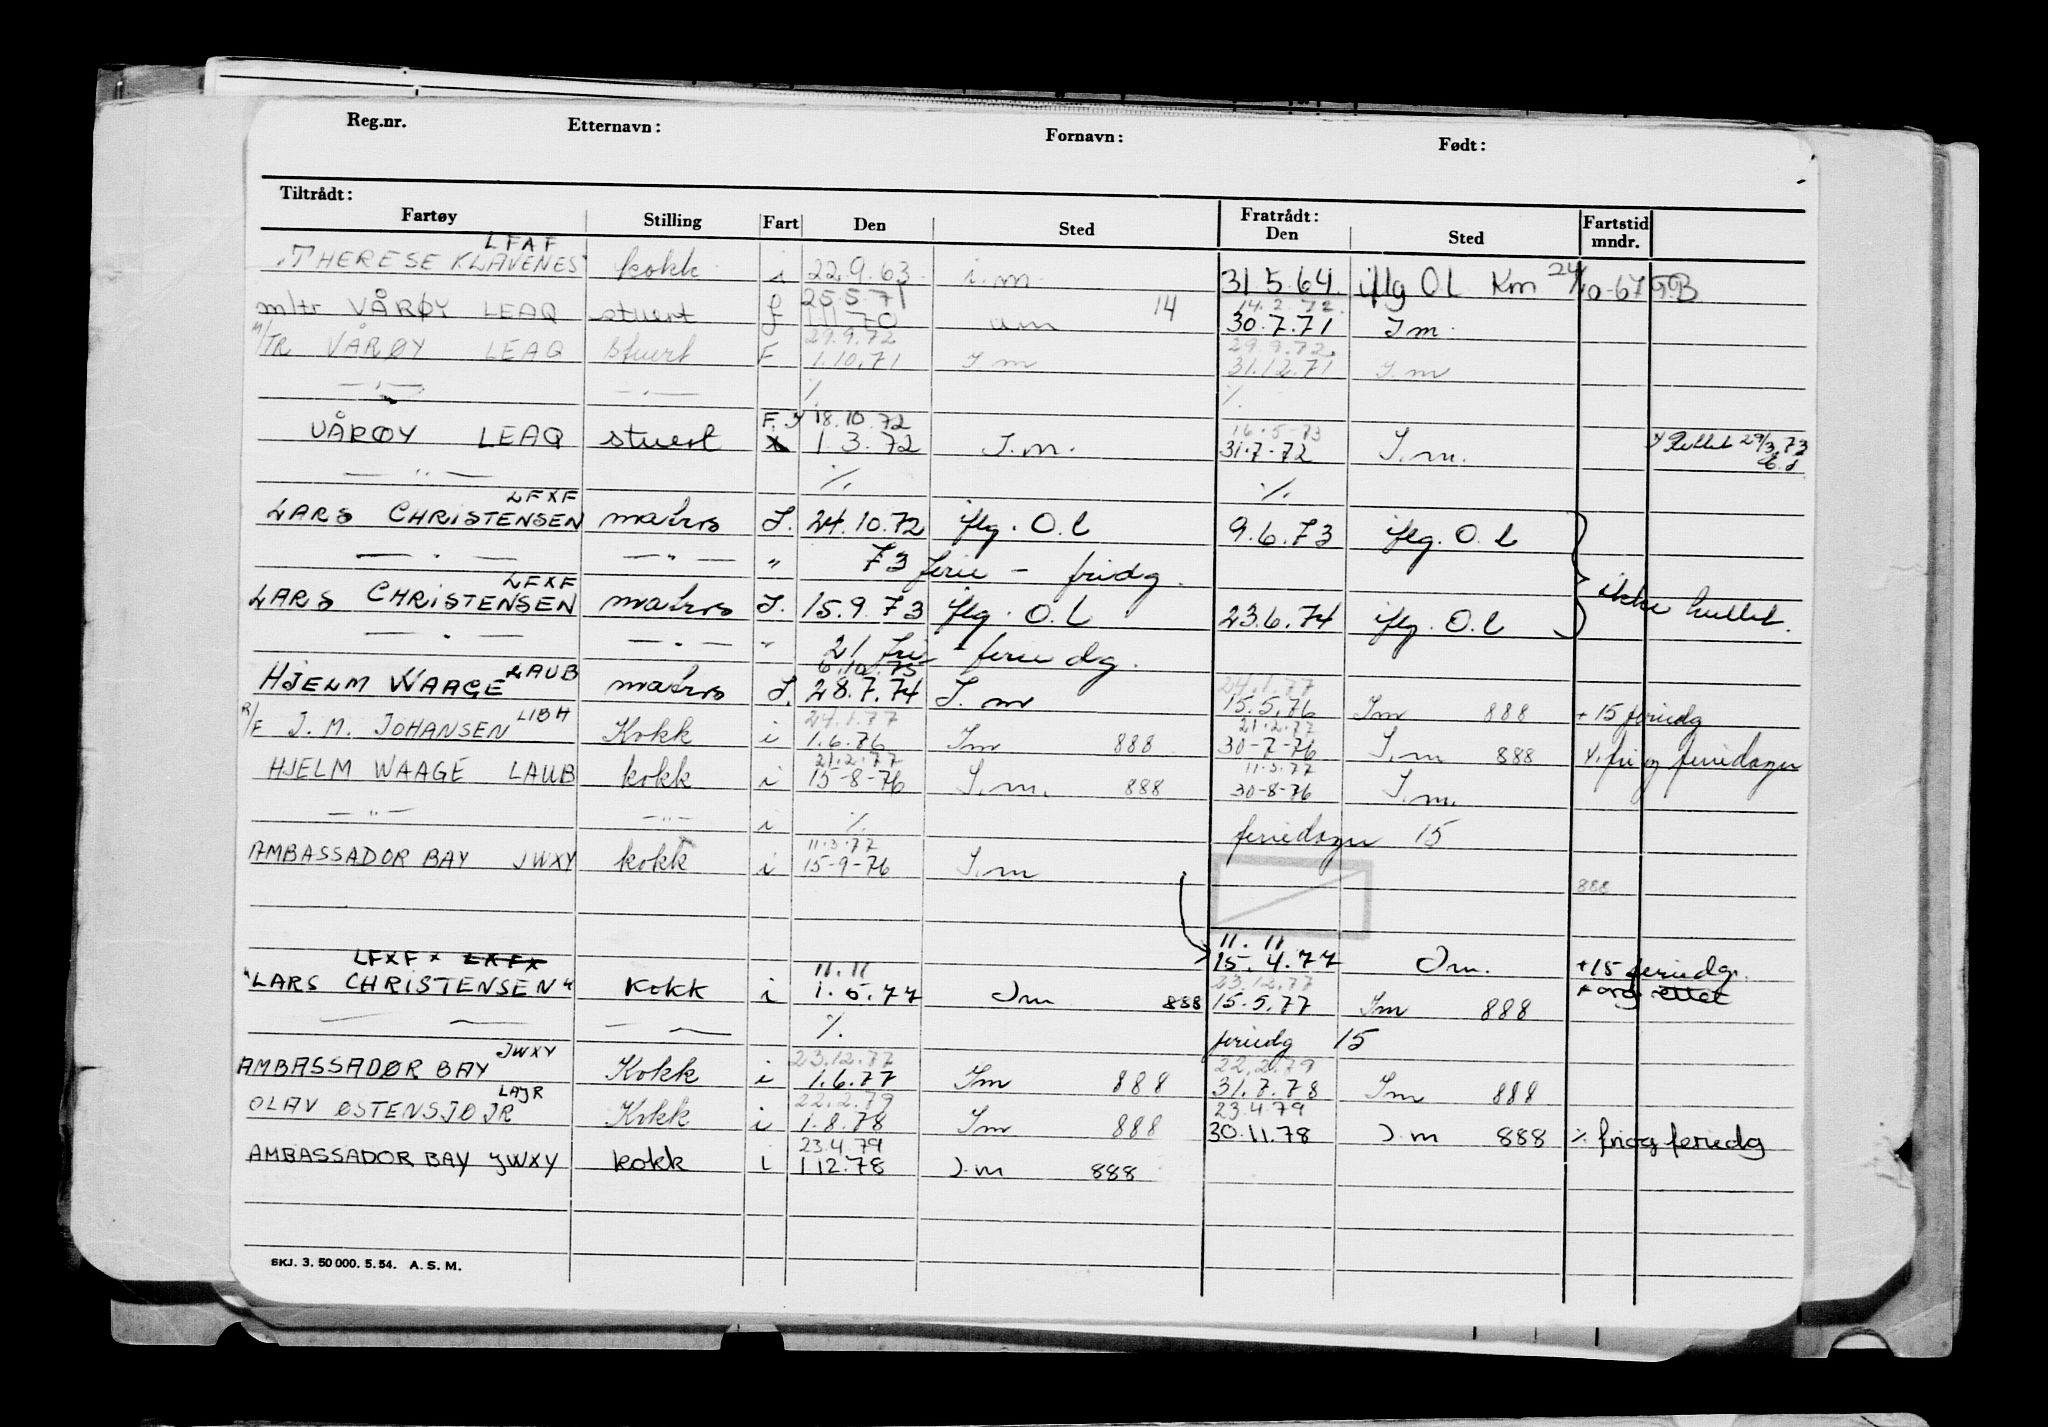 Reg.nr. Etternavn: Fornavn: Født:
Tiltrådt: Fratrådt:
Fartøy Stilling Fart Den Sted Den Sted Fartstid mndr.
LFAF
"THERESE KLAVENES" kokk i 22.9.63 i.m. 31.5.64. iflg O.L Km 24/10-67 GB
25.5.71 14 14.2.72.
m/tr VÅRØY LEAQ stuert f 1.11.70 um 30.7.71 I m.
29.9.72 29.9.72.
M/TR VÅRØY LEAQ stuert F 1.10.71 I m 31.12.71 I.m
— " — — " — % %
F.I 18.10.72 16.5-73
VÅRØY LEAQ stuert x 1.3.72 I.m. 31.7-72 I.m. x Rettet 29/3.73
— " — % %
LFXF
LARS CHRISTENSEN matros I. 24.10.72 iflg. O.l 9.6.73 iflg. O.l
— " — — " — " 73 ferie - fridg.
LFXF
LARS CHRISTENSEN matros I. 15.9.73 iflg. O.L 23.6.74 iflg. O.l ikke hullet.
— " — — " — " 21 fri - ferie dg.
LAUB 6.10.75 24.1.77
HJELM WAAGE matros I. 28.7.74 I. m 15.5.76 Im 888 +15 feriedg
LIBH 24.1.77 21.2.77
R/F J. M. JOHANSEN Kokk i 1.6.76 Im 888 30-7-76 I.m 888 %. fri og feriedager
21.2.77 11.3.77
HJELM WAAGE LAUB kokk i 15-8-76 I.m. 888 30-8-76 I.m.
— " — — " — i % feriedager 15
11.3.77
AMBASSADOR BAY JWXY kokk i 15-9-76 I.m
888
11.11
LFXF x LXFX 11.11 15.4.77 Im. +15 feriedg.
"LARS CHRISTENSEN" Kokk i 1.5.77 Im 888 23.12.77
15.5.77 Im 888 x org rettet
— — — — % feriedg 15
JWXY 23.12.77 22.2.79
AMBASSADØR BAY Kokk i 1.6.77 Im 888 31.7.78 Im 888
LAJR 22.2.79 23.4.79
OLAV ØSTENSJØ JR Kokk i 1.8.78 Im 888 30.11.78 I.m 888 % fri og feriedg
23.4.79
AMBASSADOR BAY JWXY kokk i 1 12.78 I.m 888
SKJ. 3. 50 000. 5. 54. A. S. M.